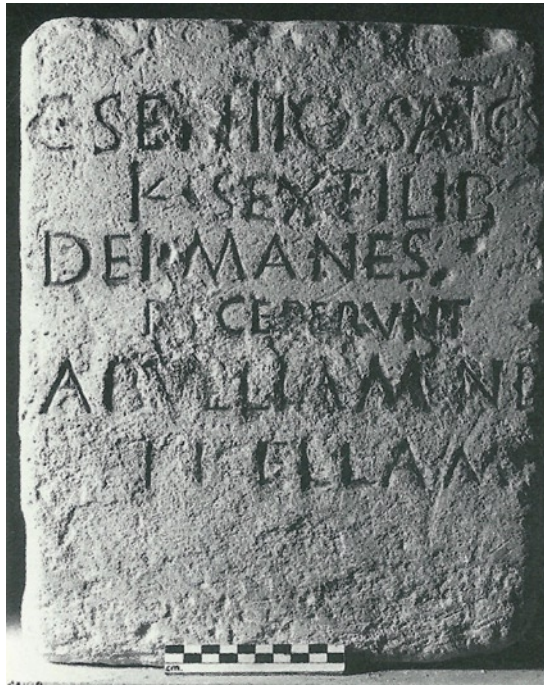 C SENTIO SAT COS
K SEXTILIB
DEI MANES
RECEPERVNT
ABVLLIAM N L
NIGELLAM
cm.